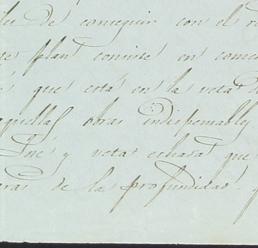 de conseguir con el
plan consiste en
que está en la veta
aquellas obras indispensables
y veta echada que
de la profundidad